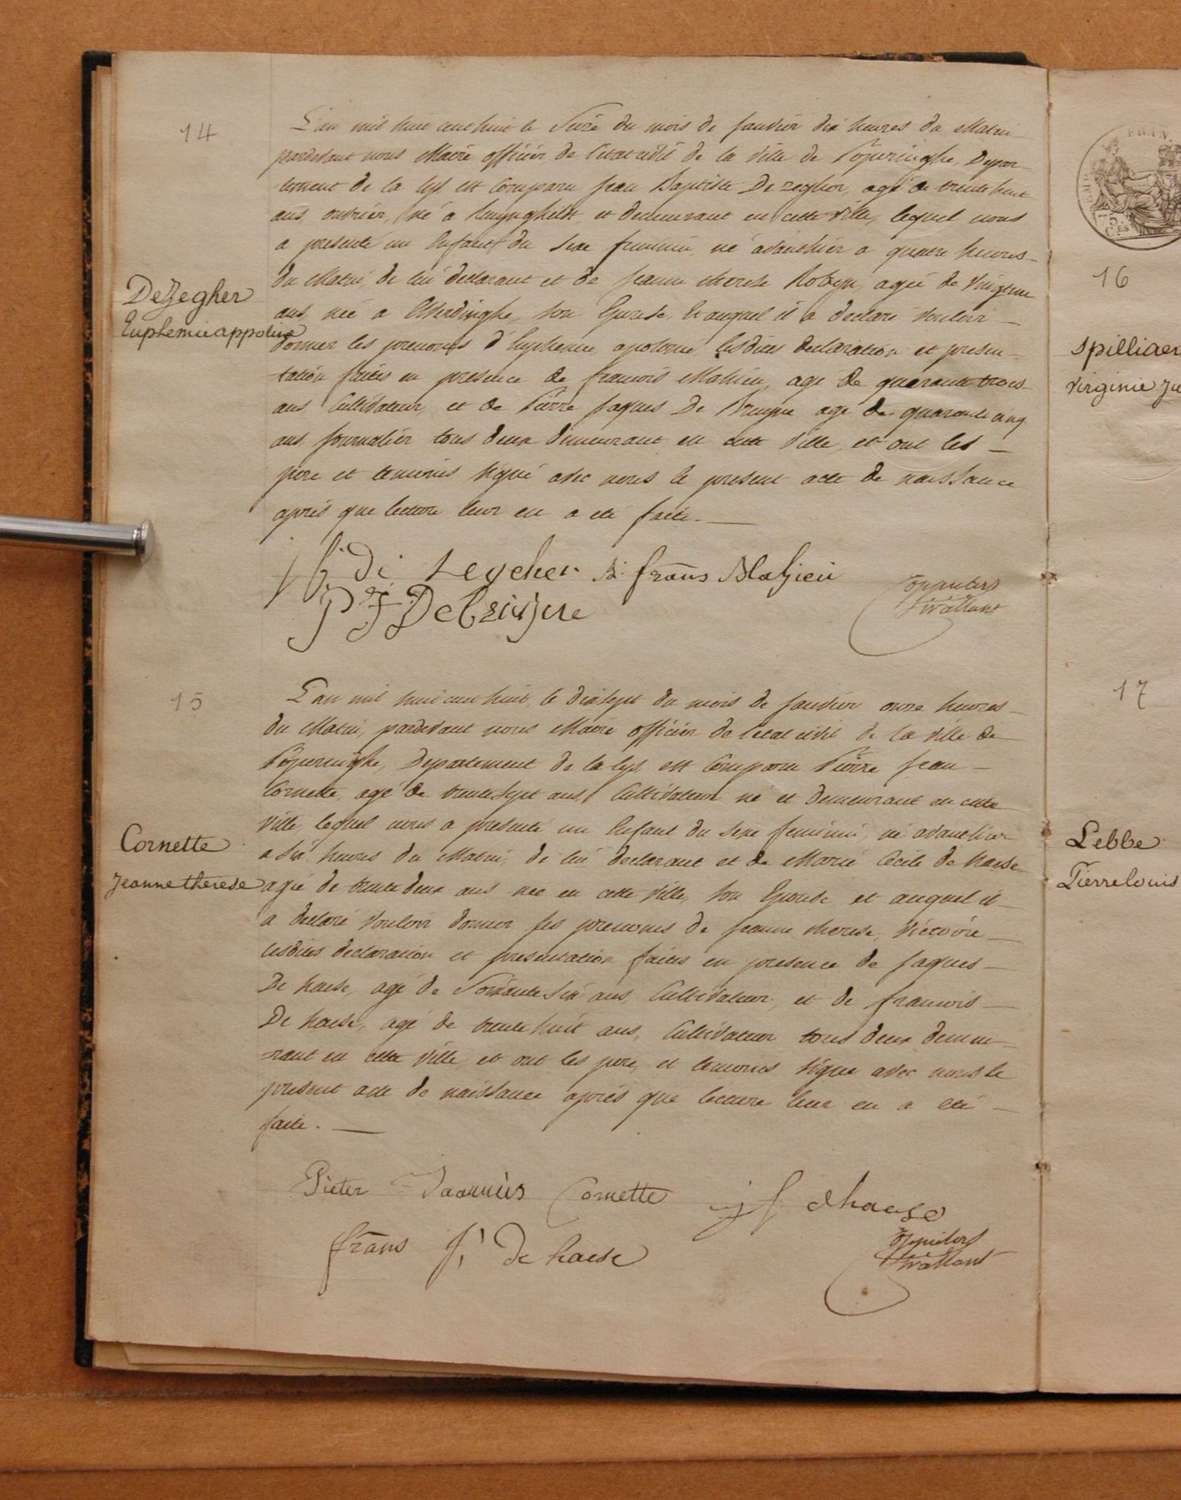 14
L'an mil huit cent huit le Seize du mois de Janvier dix heures du Matin
pardevant nous Maire officier de l'etat civil de la ville de Poperinghe Depar-
tement de la lys est Comparu Jean Baptiste De Zegher, agé de trente huit
ans ouvrier, né à Reninghelst et demeurant en cette ville, lequel nous
a presenté un Enfant du Sexe feminin né avanthier a quatre heures
du Matin, de lui declarant et de Jeanne therese Robyn, agée de
ans, née a Elverdinghe, son Epouse, & auquel il a declaré vouloir
donner les prenoms d'Euphemie apolonie lesdites declaration et presen-
tation faites en presence de francois Mahieu, agé de quarante trois
ans Cultivateur, et de Pierre Jaques De Bruyne agé de quarante cinq
ans journalier tous deux demeurant en cette ville, et ont les
pere et temoins signé avec nous le present acte de naissance
aprés que lecture leur en a eté faite.
DeZegher
Euphemie appolonie
J B De Zegher frans Mahieu
P J Debruyne
15
L'an mil huit cent huit, le dixsept du mois de Janvier onze heures
du Matin, pardevant nous Maire officier de l'etat civil de la ville de
Poperinghe, Departement de la lys, est Comparu Pierre Jean
Cornette, agé de trente sept ans, Cultivateur né et demeurant en cette
ville, lequel nous a presenté un Enfant du Sexe feminin, né avanthier
a Six heures du Matin, de lui declarant et de Marie Cecile de haese
agée de trente deux ans née en cette ville, son Epouse et auquel il
a declaré vouloir donner les prenoms de Jeanne therese, Victoire
lesdites declaration et presentation faites en presence de Jaques
De haese, agé de Soixante Six ans, Cultivateur, et de francois
De haese, agé de trente huit ans, Cultivateur tous deux demeu-
rant en cette ville, et ont les pere, et temoins signé avec nous le
present acte de naissance aprés que lecture leur en a eté
faite.
Cornette
Jeanne therese
Pieter Joannes Cornette j f dhaese
frans J De haese
16
Spilliaer
Virginie
17
Lebbe
Pierre louis